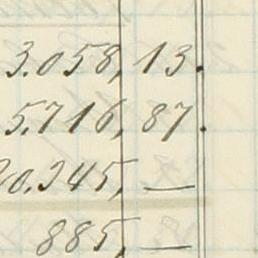 3.058,13.
5.716,87.
20.245,—
885,—